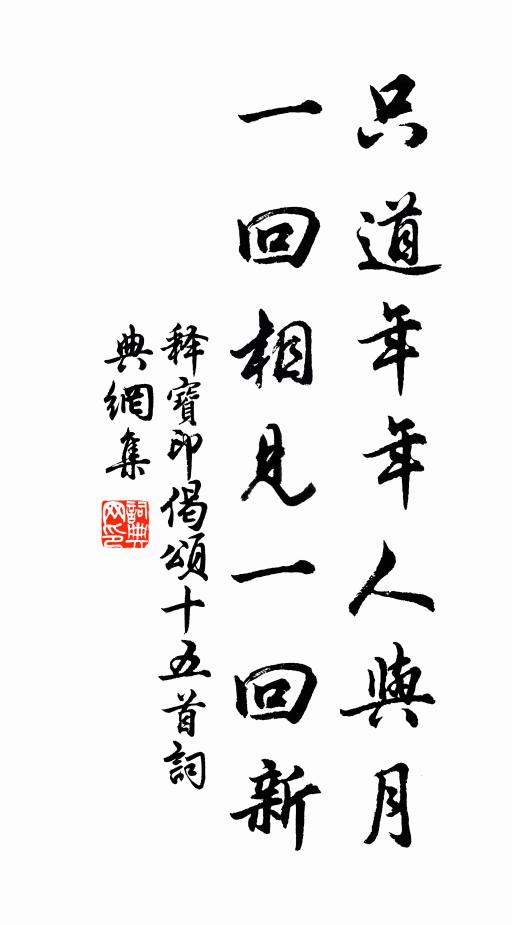 只道年年人與月
一回相見一回新
释寶印偈頌十五首詞
典網集
詞典网印